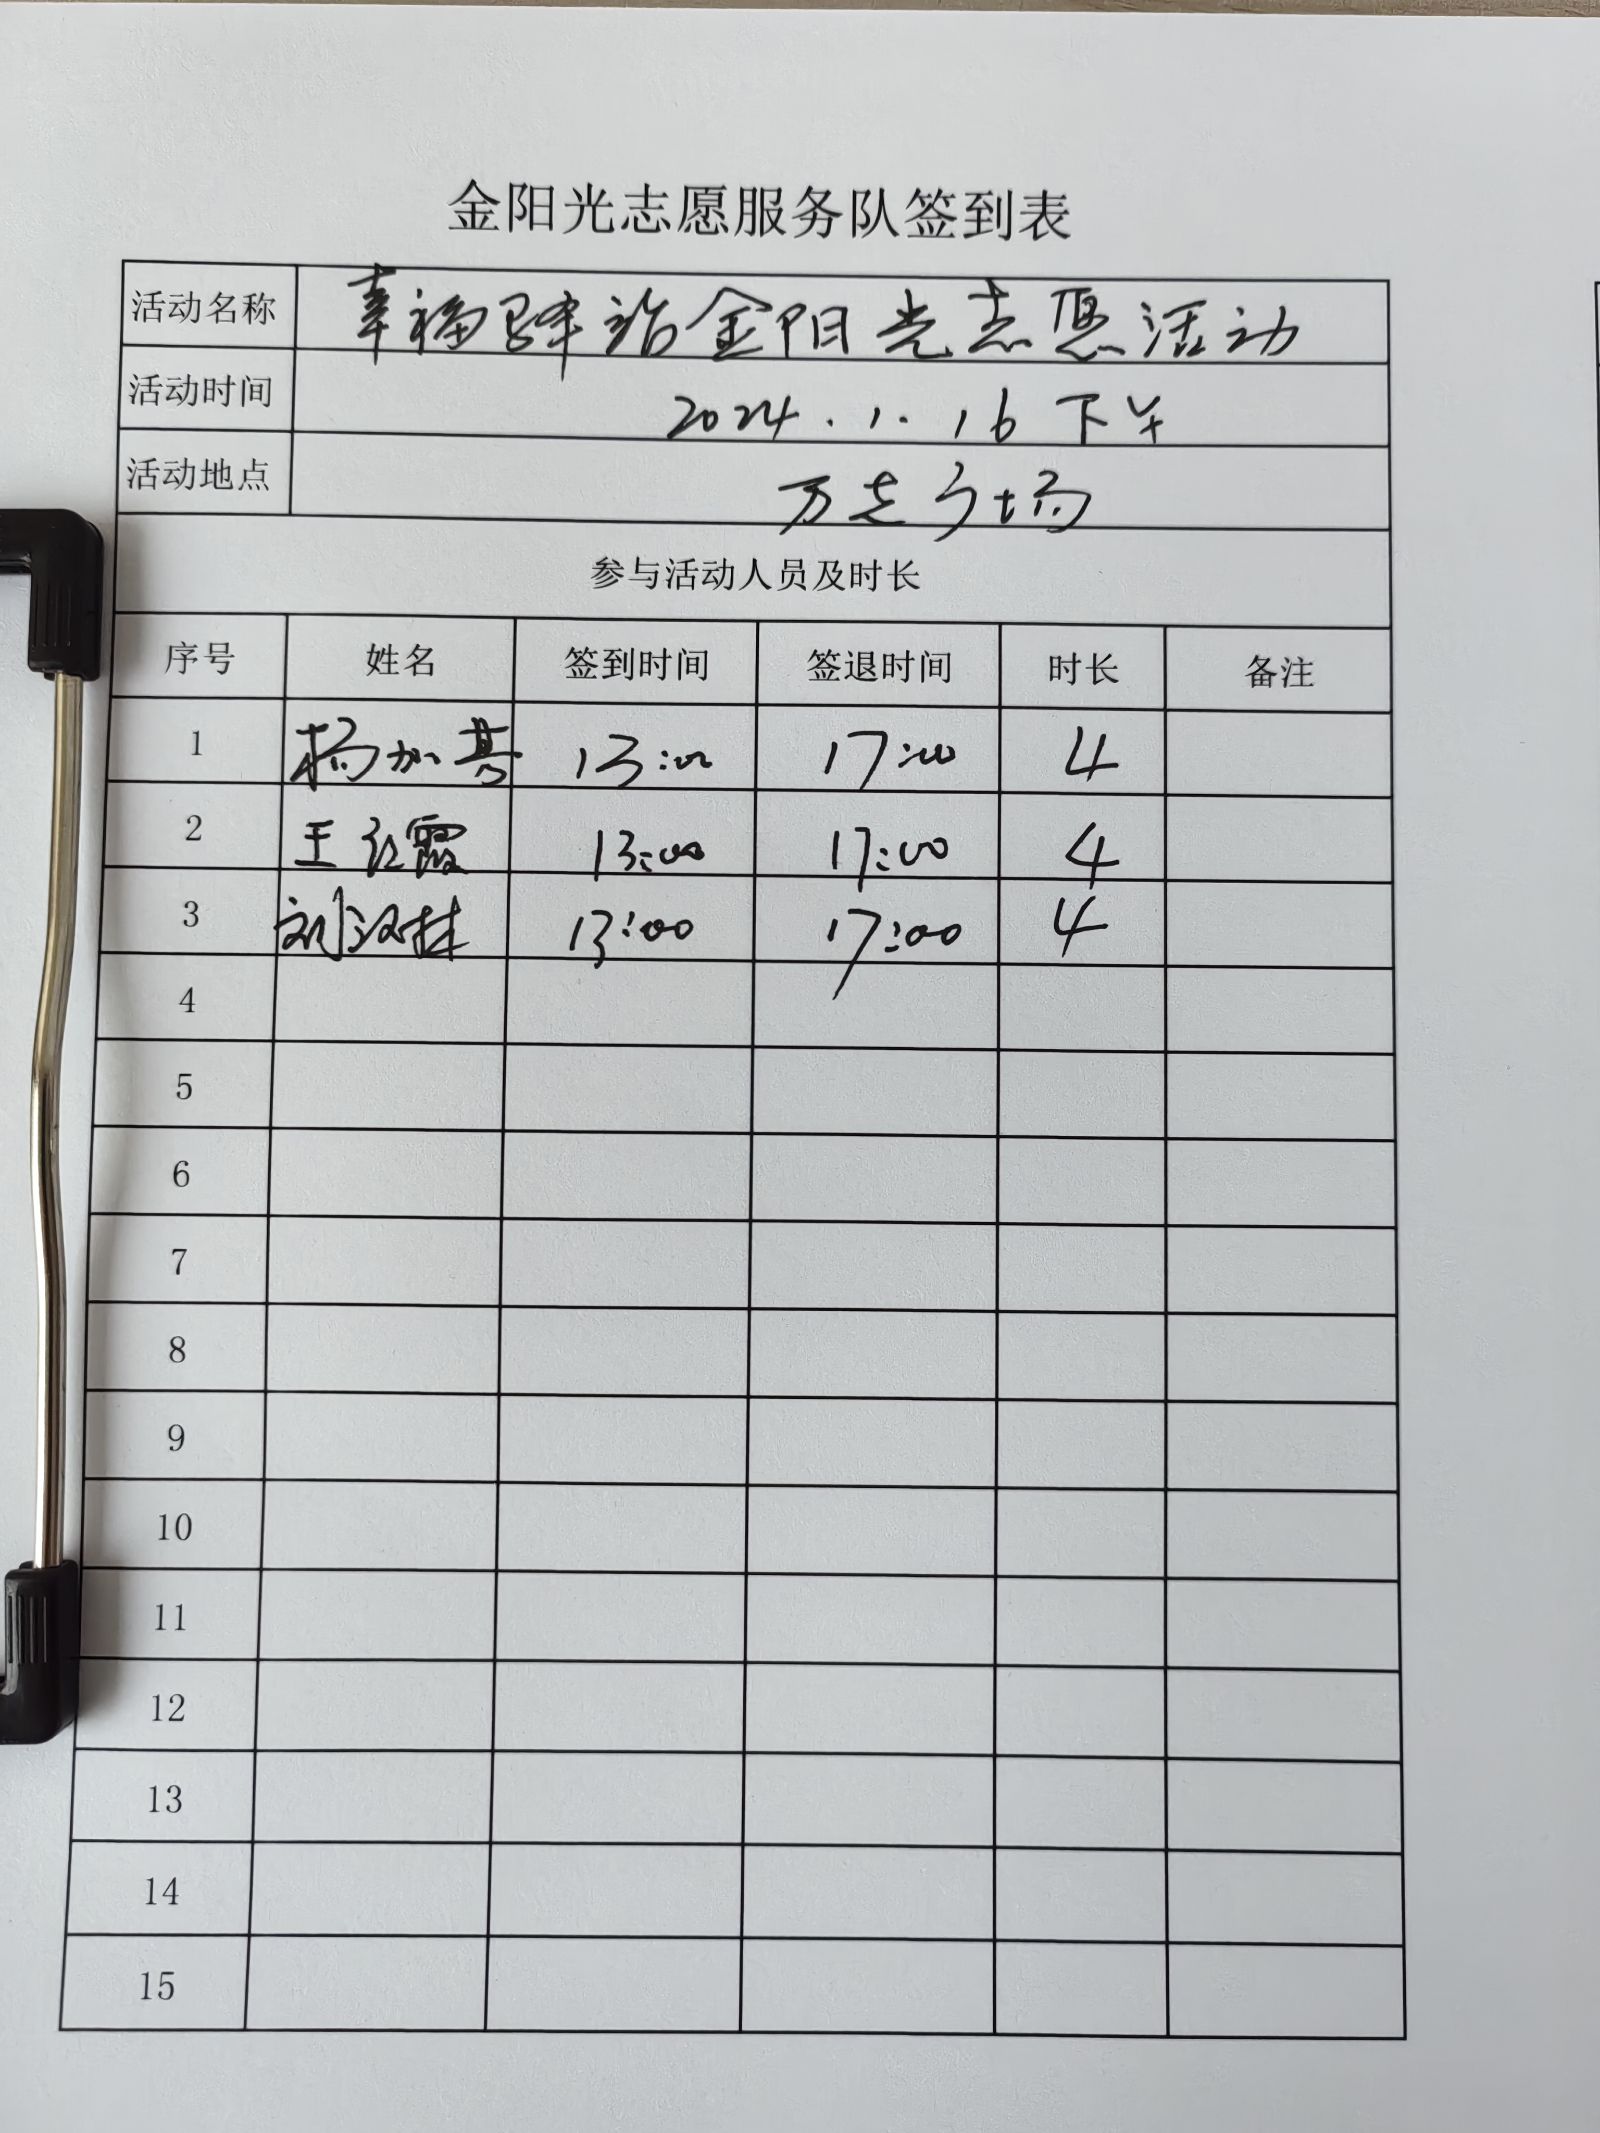 金阳光志愿服务队签到表
活动名称 幸福驿站金阳光志愿活动
活动时间 2024.1.16下午
活动地点 万达广场
参与活动人员及时长
序号 姓名 签到时间 签退时间 时长 备注
1 杨加 13:00 17:00 4
2 王红霞 13:00 17:00 4
3 刘汉林 13:00 17:00 4
4
5
6
7
8
9
10
11
12
13
14
15